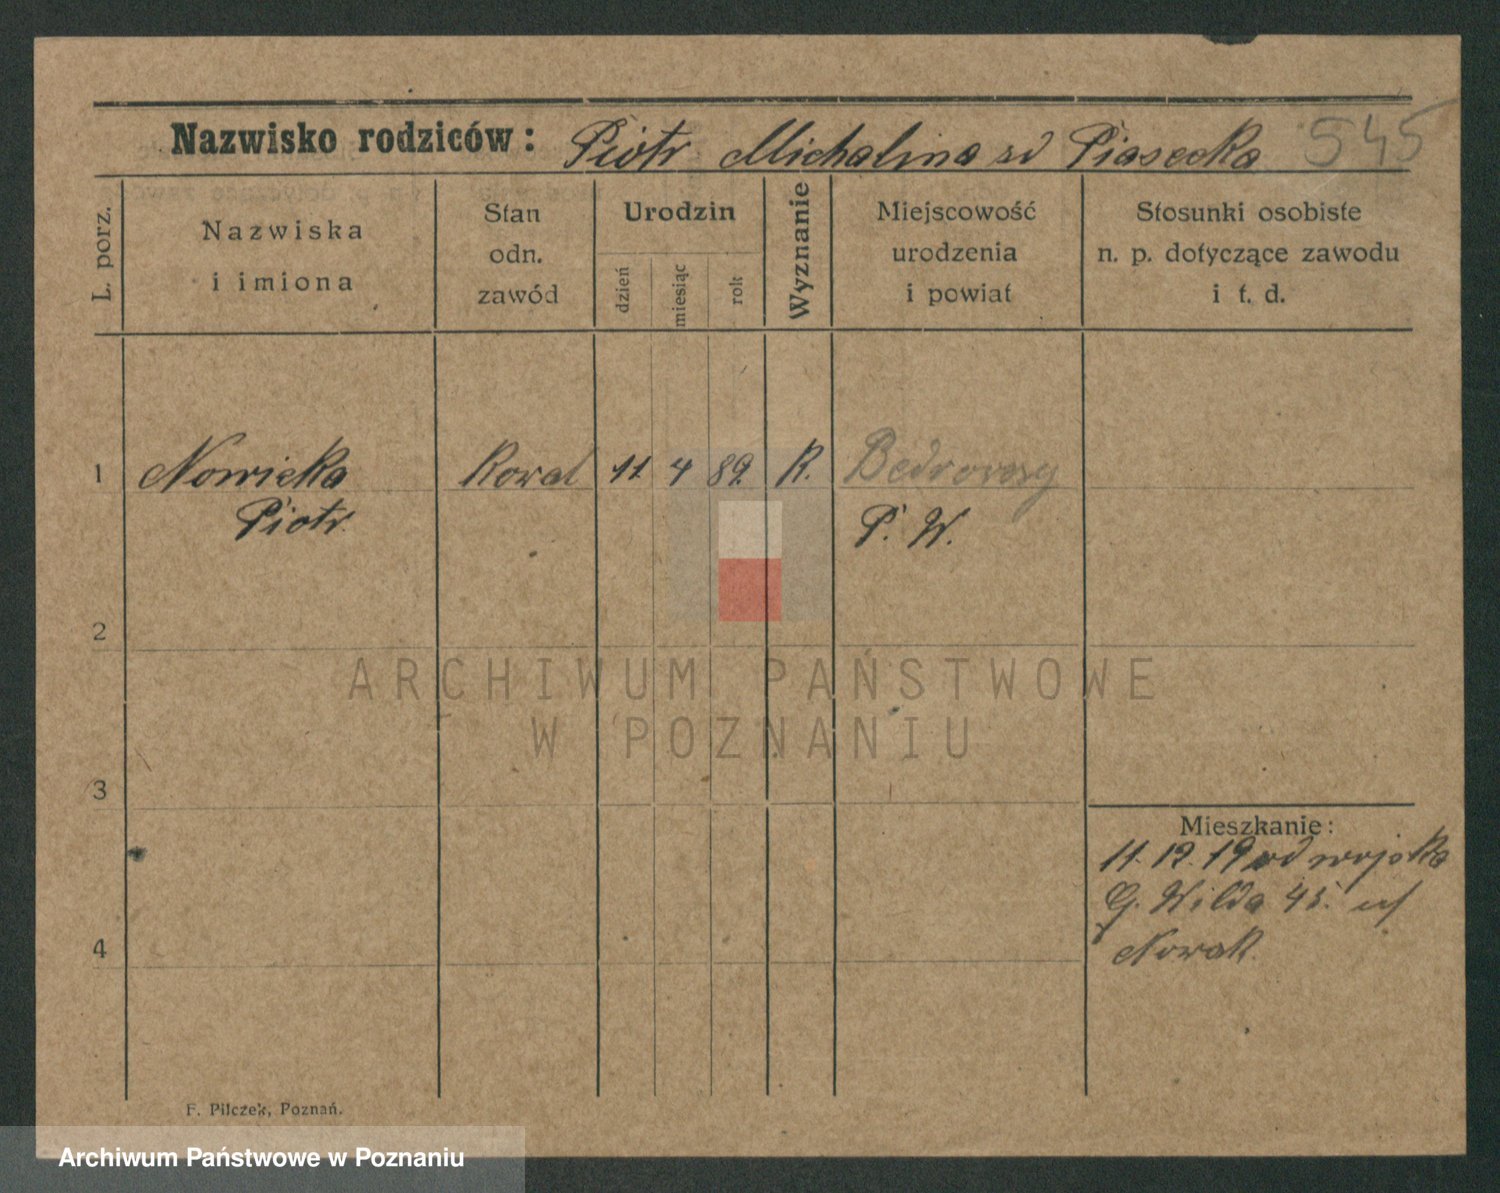 Nazwisko rodziców: Piotr Michalina zd Piasecka 545
L. porz.
Nazwiska
i imiona
Stan
odn.
zawód
Urodzin
dzień
miesiąc
rok
Wyznanie
Miejscowość
urodzenia
i powiat
Stosunki osobiste
n. p. dotyczące zawodu
i t. d.
1 Nowicka Kowal 11 4 89. K.
Piotr. P. W.
2
ARCHIWUM PAŃSTWOWE
W POZNANIU
3
Mieszkanie:
11.12.19 od wojska
G. Wilda 45.
4 Nowak.
F. Pilczek, Poznań.
Archiwum Państwowe w Poznaniu